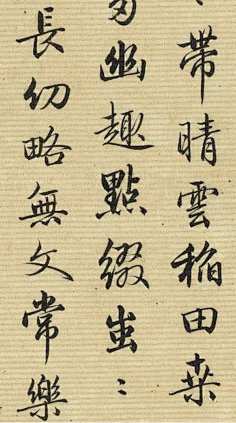 帶晴雲稻田桑
幽趣點綴出
長幼略無文常樂